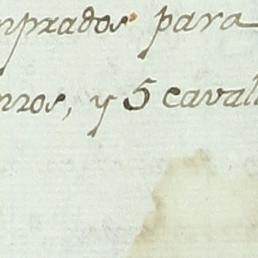 nprados para
nros, y 5 cavall